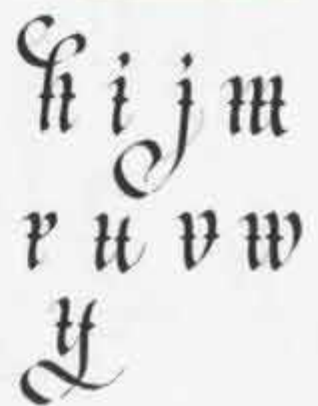 h i j m
r u v w
y